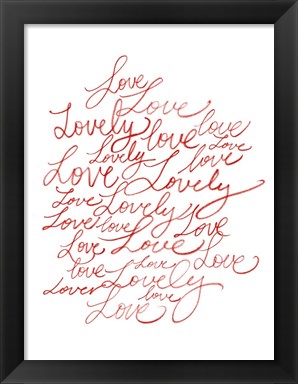 Love
Love
Lovely love love
Lovely Love
Love love
Lovely
Love Lovely
Love love Love
Love Love
love Love Love
Lover Lovely
love
Love